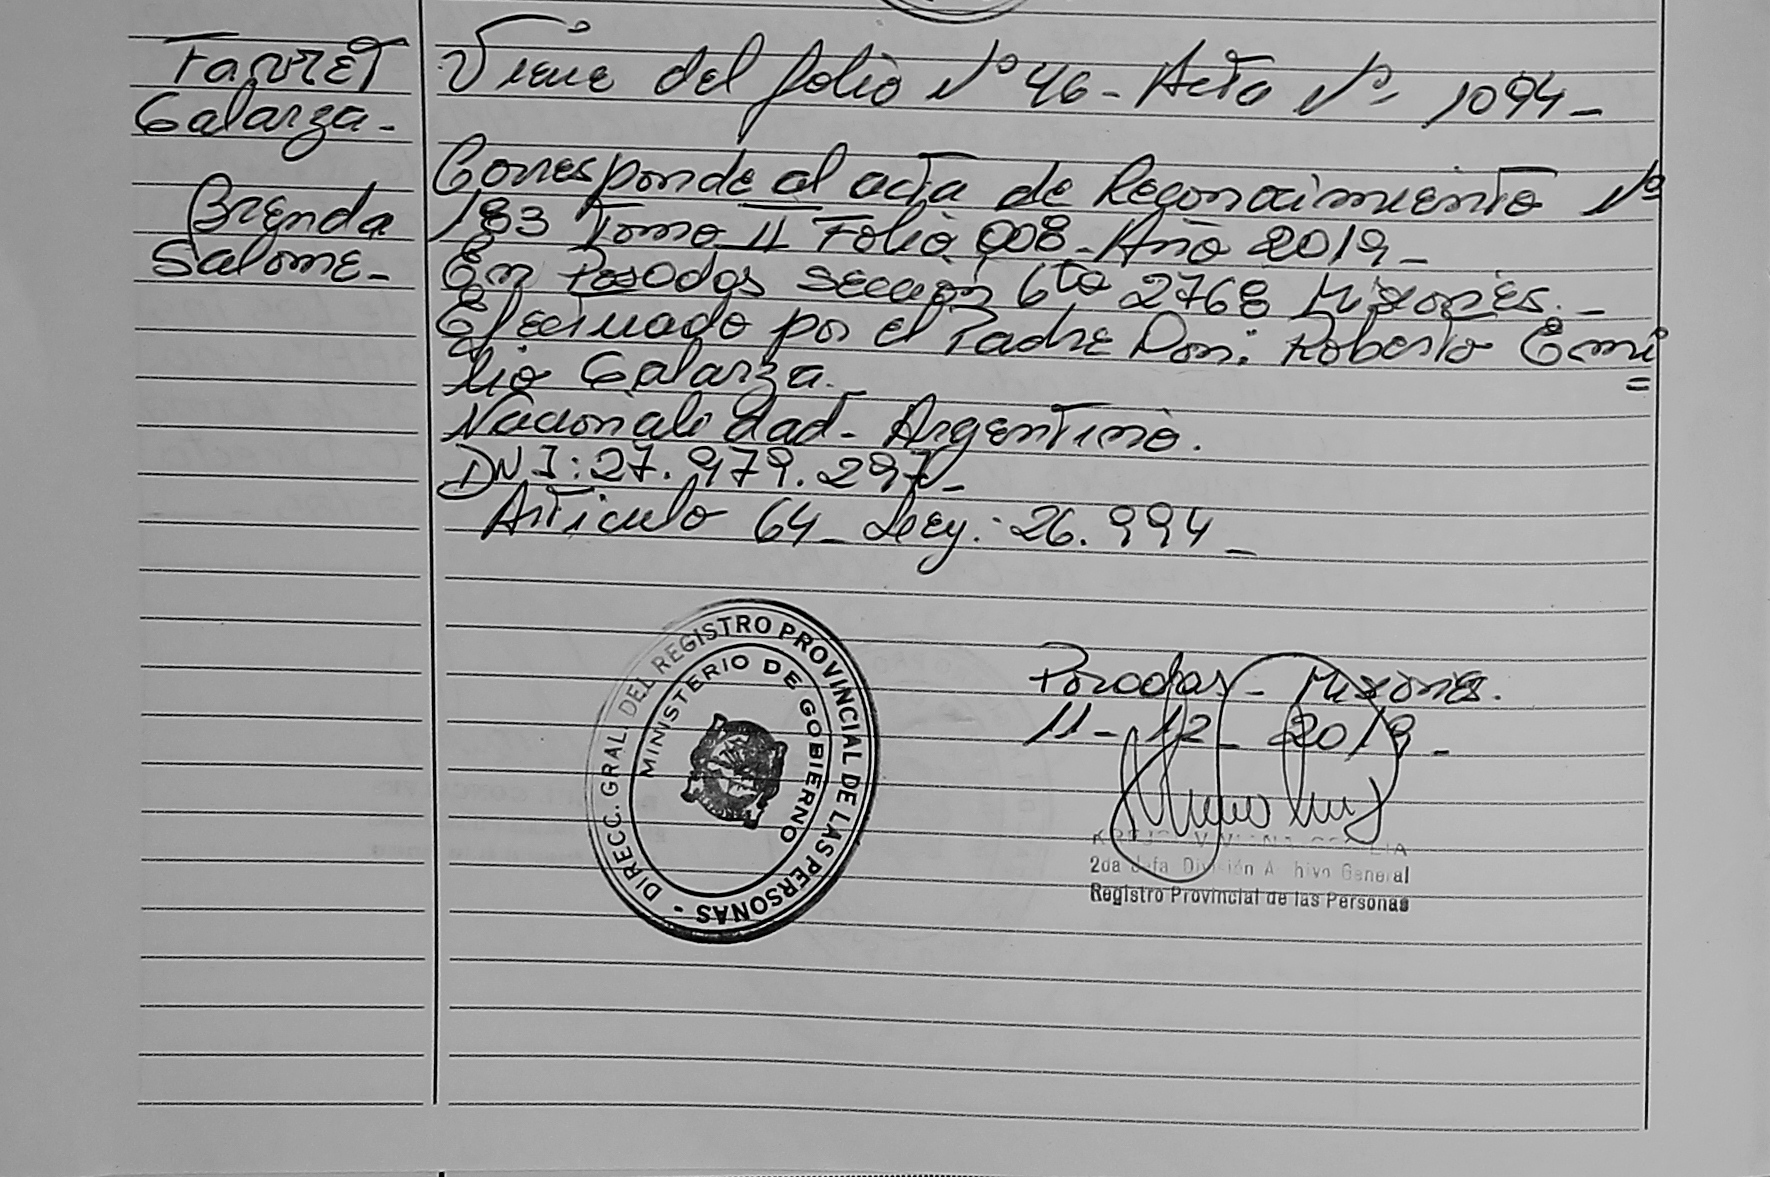 Galarza-
Brenda
Salome-
Viene del folio Nº 46- Acta Nº 1094-
Corresponde al acta de Reconocimiento Nº
183 Tomo II Folio 008- Año 2019-
En Posadas sección 6ta 2768 Misiones.-
Efectuado por el Padre Don: Roberto Emi
lio Galarza.-
Nacionalidad- Argentino.
DNI: 27.979.297-
Articulo 64- Ley: 26.994-
DIRECC. GRAL. DEL REGISTRO PROVINCIAL DE LAS PERSONAS -
MINISTERIO DE GOBIERNO
Posadas- Misiones.
11-12-2019-
2da Jefa División Archivo General
Registro Provincial de las Personas